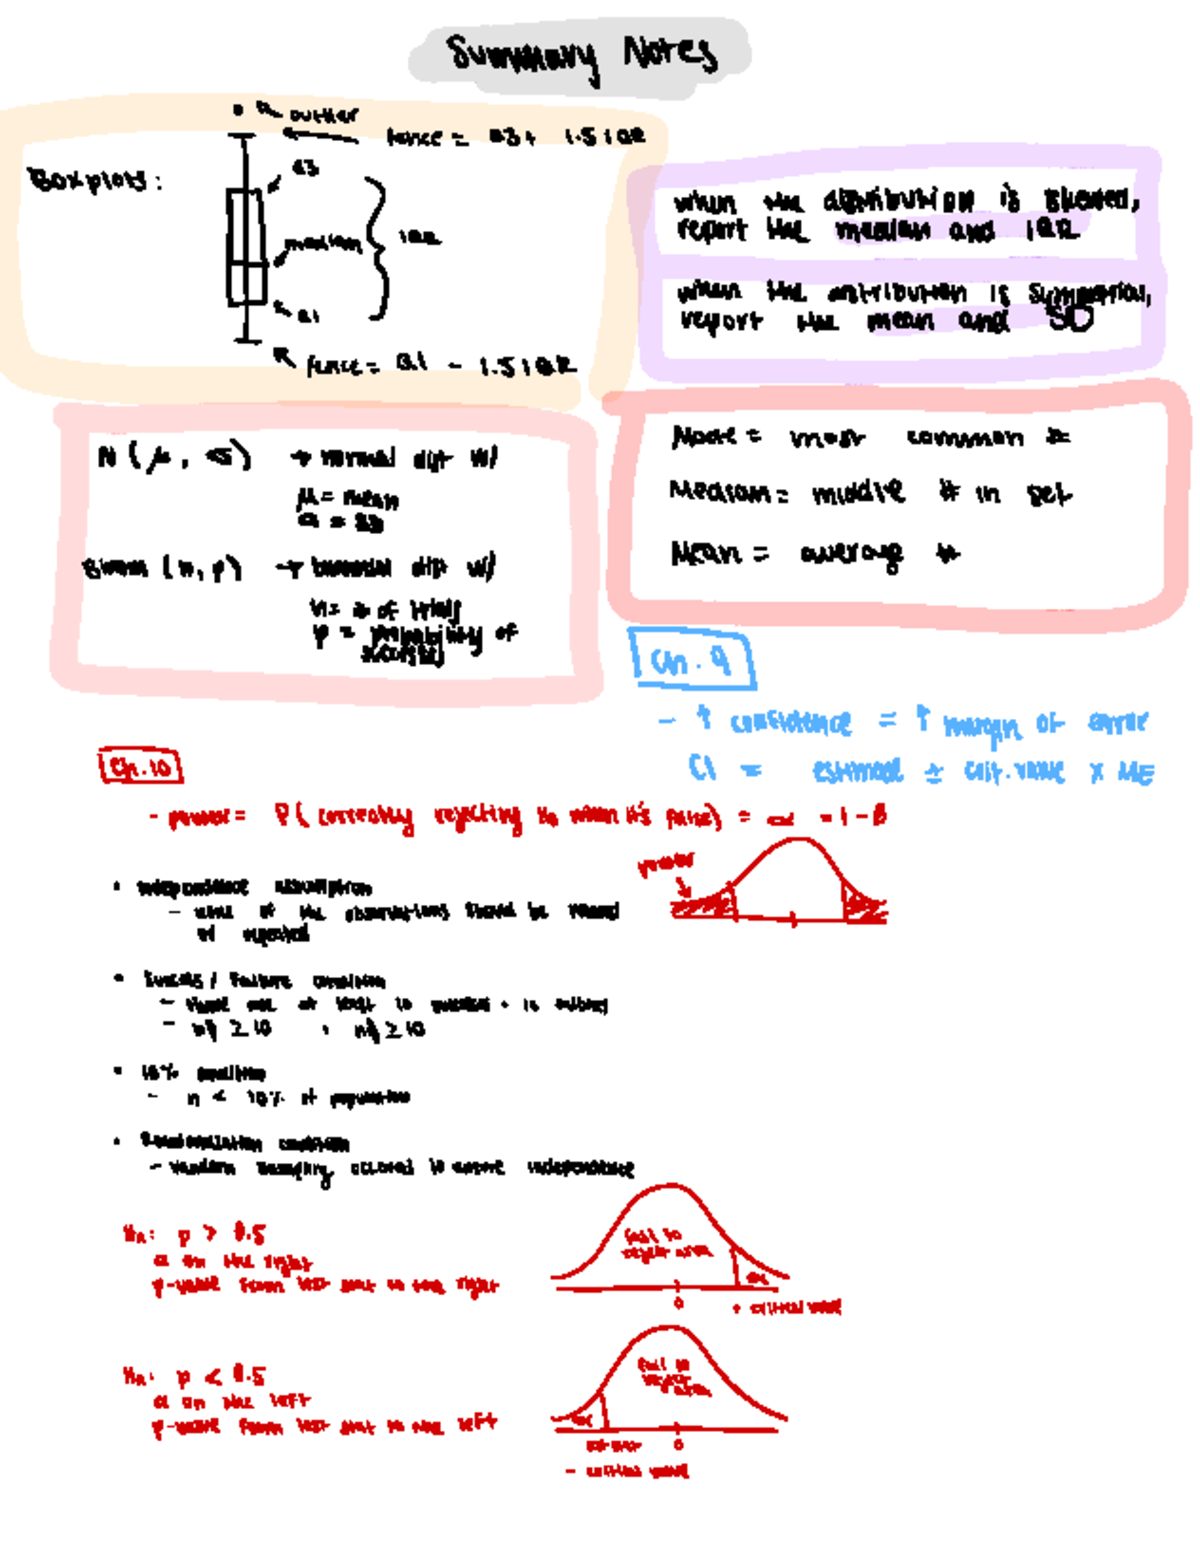 Summary Notes
outlier
fence = Q3 + 1.5 IQR
Boxplots:
Q3
median
IQR
Q1
fence = Q1 - 1.5 IQR
when the distribution is skewed,
report the median and IQR
when the distribution is symmetrical,
report the mean and SD
N (μ, σ) → normal dist w/
μ = mean
σ = SD
Binom (n, p) → binomial dist w/
n = # of trials
p = probability of
success
Mode = most common #
Median = middle # in set
Mean = average #
Ch. 9
- ↑ confidence = ↑ margin of error
CI = estimate ± crit. value x ME
Ch. 10
- power = P( correctly rejecting H₀ when it's false) = = 1 - β
power
• Independence assumption
- of the observations should be
• Success / Failure condition
- at least 10 + 10
- ≥ 10 , ≥ 10
• 10% condition
- n < 10% of population
• Randomization condition
- random sampling occurred to ensure independence
Hₐ: p > 0.5
α on the right
p-value from test stat to the right
fail to
reject area
α
0
+ critical value
Hₐ: p < 0.5
α on the left
p-value from test stat to the left
fail to
reject
area
α
0
- critical value